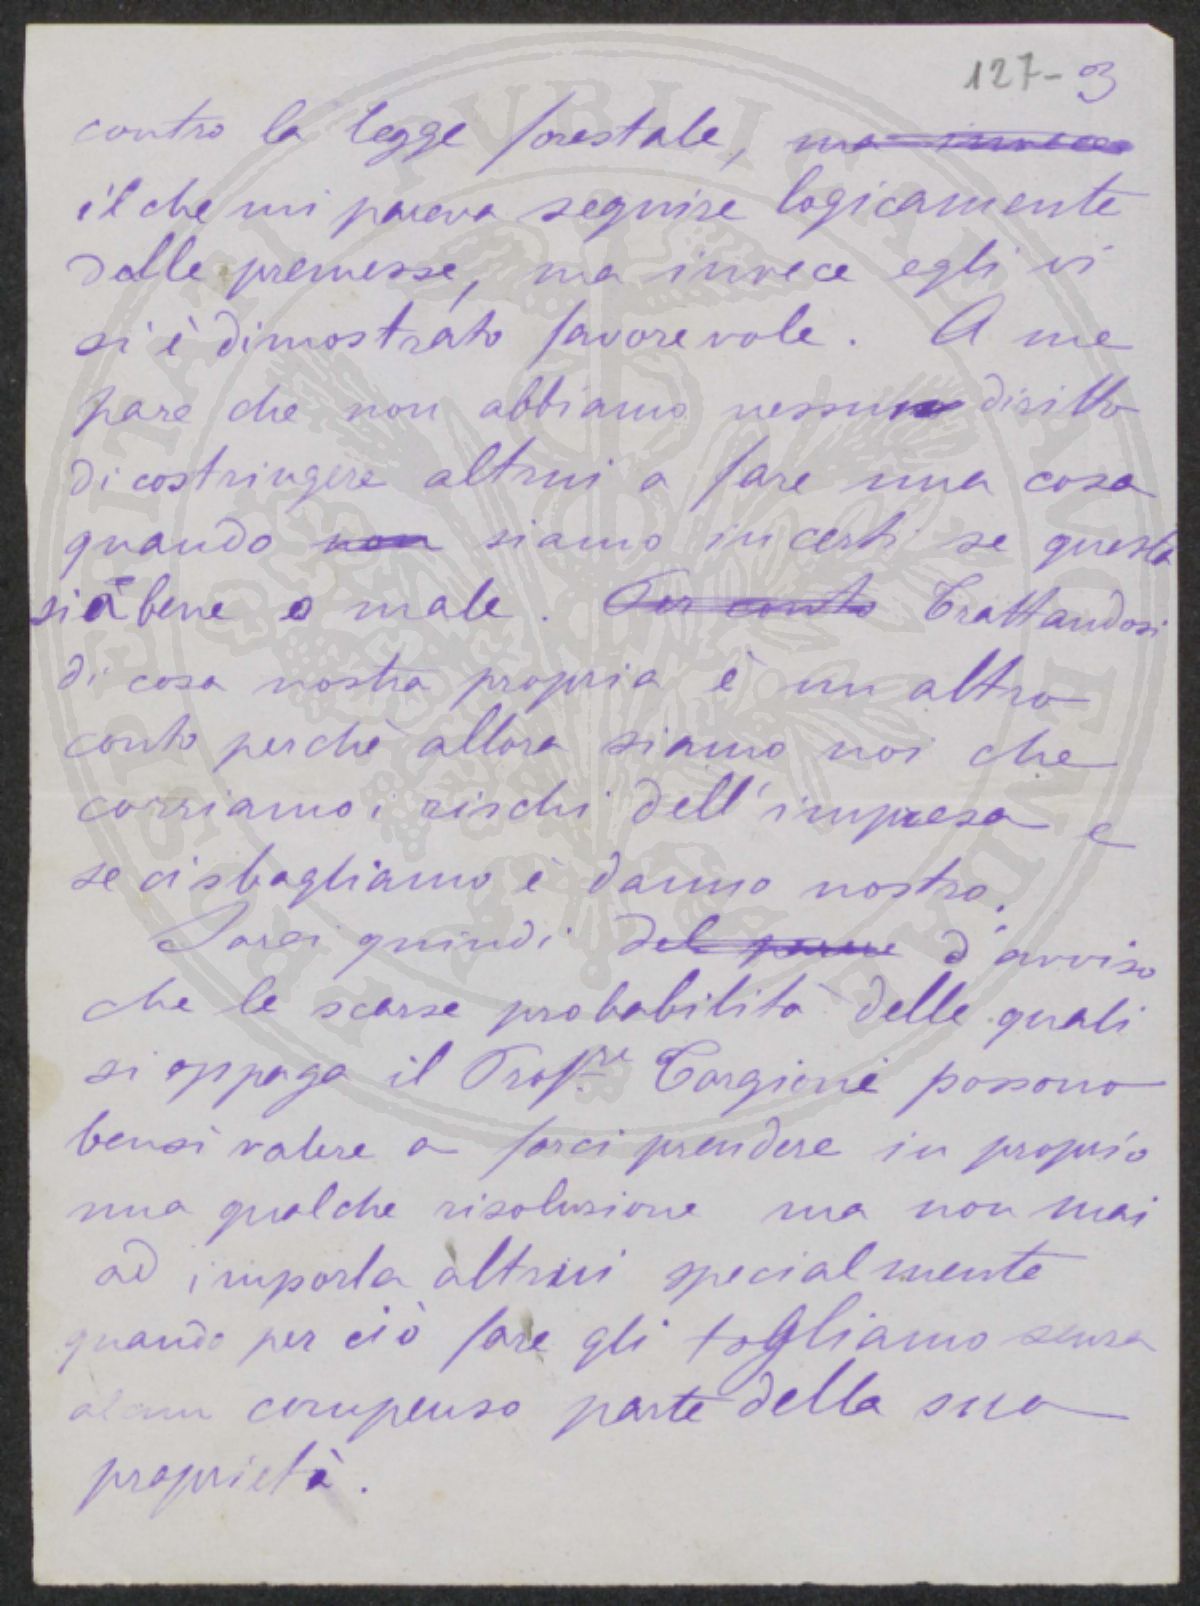 127-3
contro la legge forestale, ma invece
il che mi pareva seguire logicamente
dalle premesse, ma invece egli vi
si è dimostrato favorevole. A me
pare che non abbiamo nessun diritto
di costringere altrui a fare una cosa
quando non siamo incerti se questa
sia bene o male. Per conto Trattandosi
di cosa nostra propria è un altro
conto perchè allora siamo noi che
corriamo i rischi dell'impresa e
se ci sbagliamo è danno nostro.
Sarei quindi del parere d'avviso
che le scarse probabilità delle quali
si appaga il Prof.re Targioni possono
bensì valere a farci prendere in proprio
una qualche risoluzione ma non mai
ad imporla altrui specialmente
quando per ciò fare gli togliamo senza
alcun compenso parte della sua
proprietà.